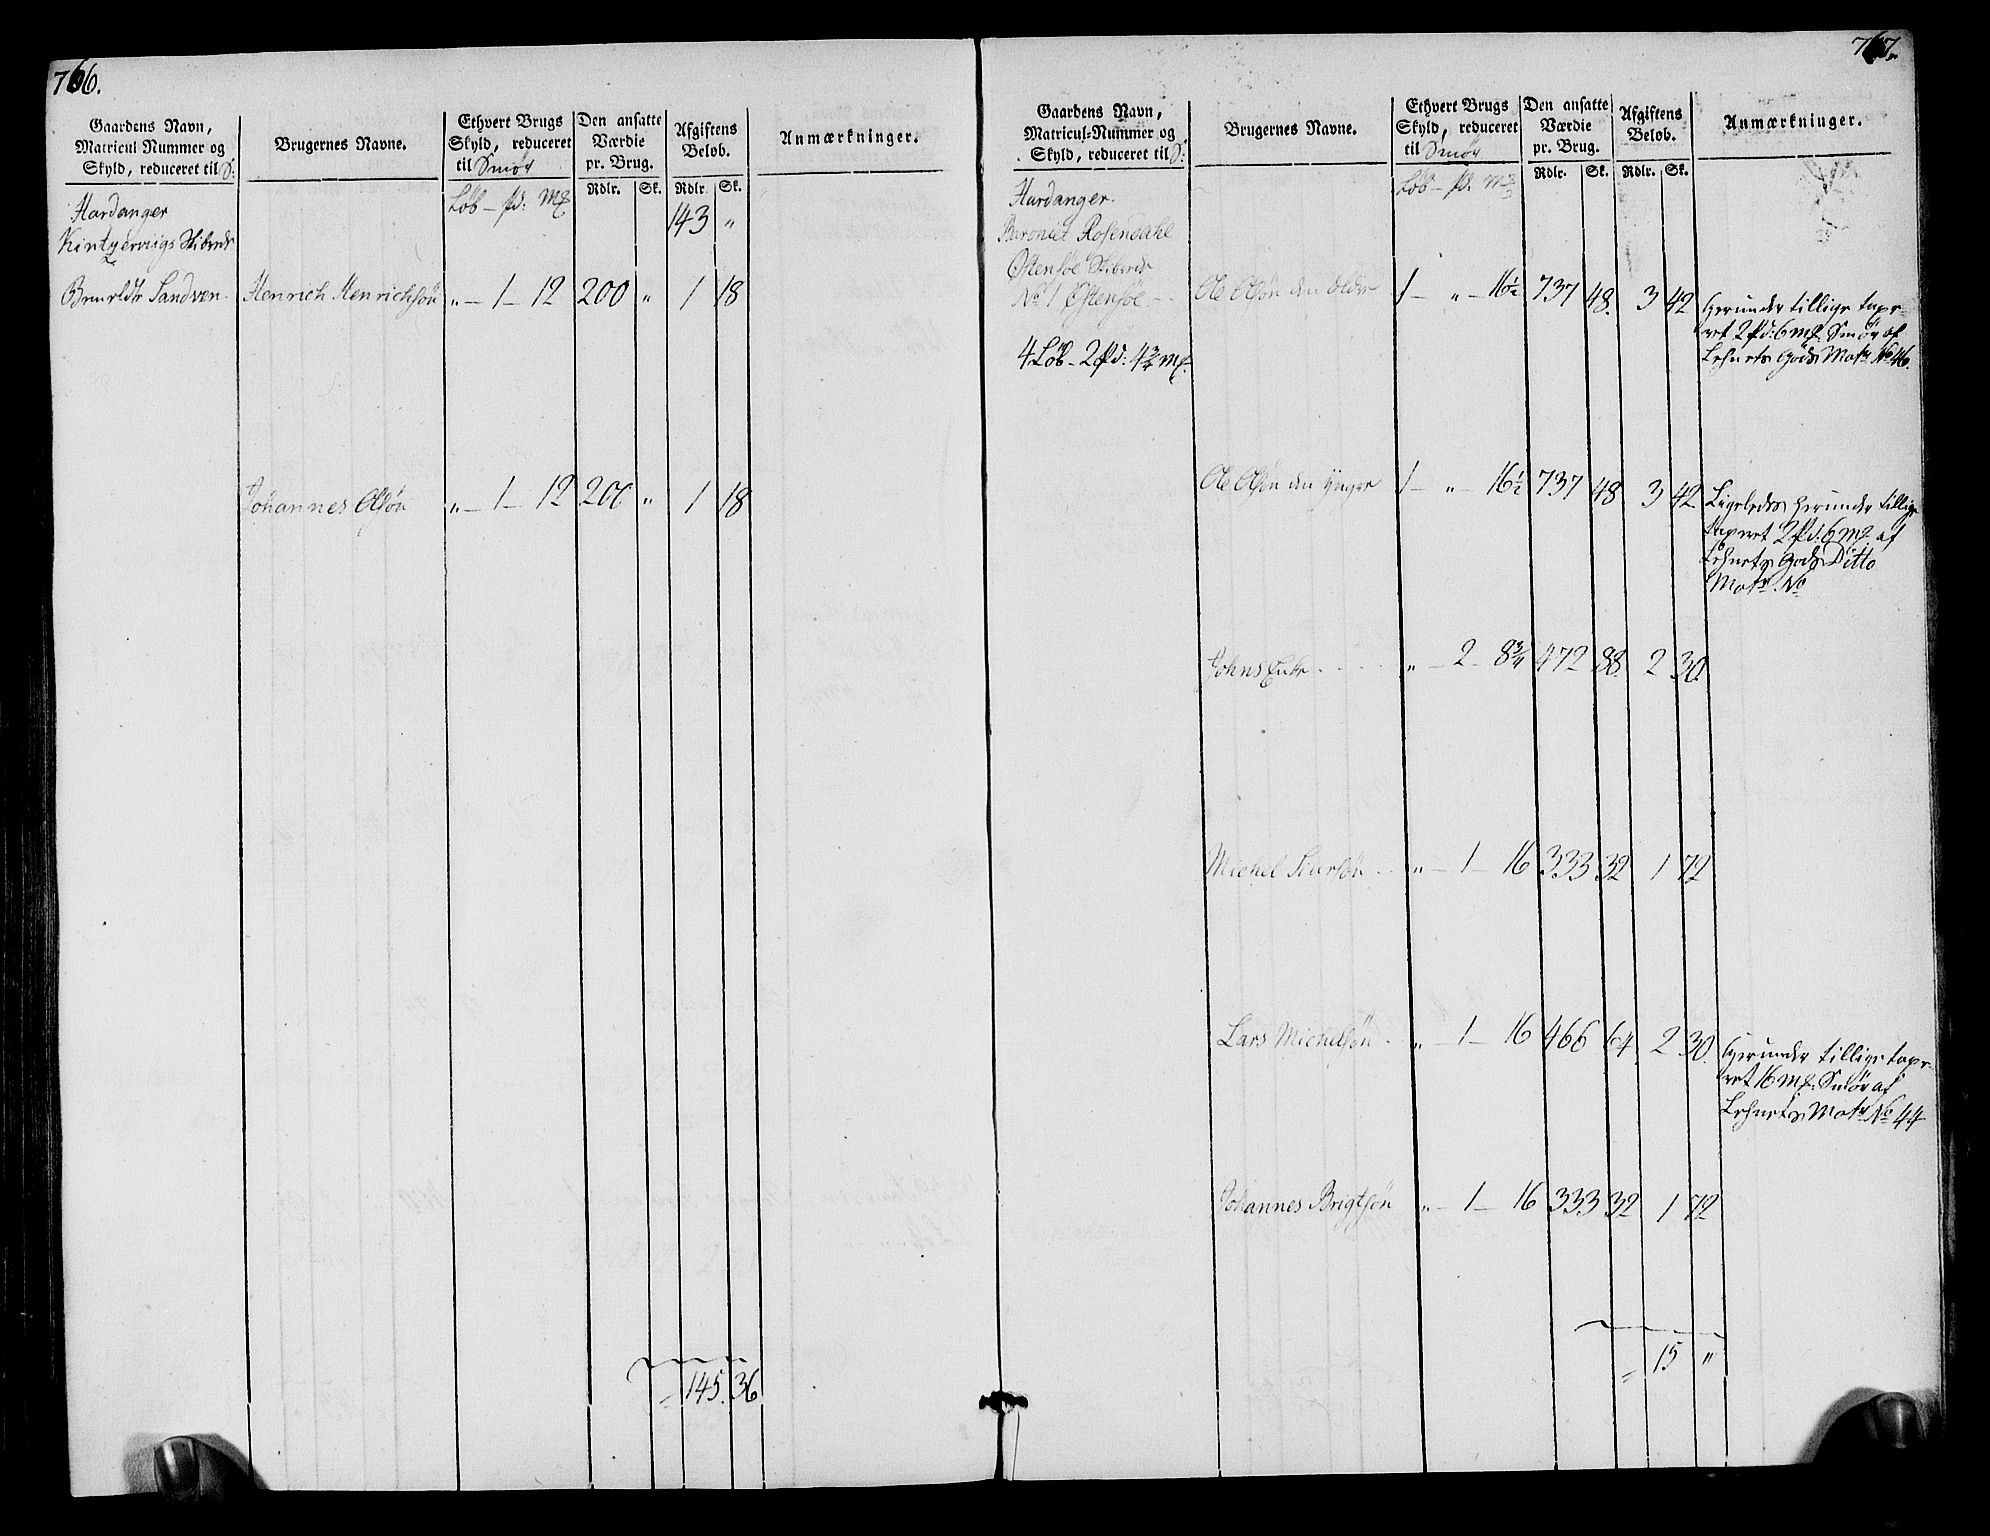 766.
Gaardens Navn,
Matricul Nummer og
Skyld, reduceret til S:
Brugernes Navne.
Ethvert Brugs
Skyld, reduceret
til Smør
Den ansatte
Værdie
pr. Brug.
Afgiftens
Beløb.
Anmærkninger.
Rdlr. Sk. Rdlr. Sk.
Hardanger
Løb - pd: m℔
143 "
Kintzerviigs Skibrede
Sandven Henrich Henrichsøn " - 1 - 12 200 " 1 18
Johannes Olsøn " - 1 - 12 200 " 1 18
= 145. 36
767.
Gaardens Navn,
Matricul-Nummer og
Skyld, reduceret til S:
Brugernes Navne.
Ethvert Brugs
Skyld, reduceret
til Smør
Den ansatte
Værdie
pr. Brug.
Afgiftens
Beløb.
Anmærkninger.
Rdlr. Sk. Rdlr. Sk.
Hardanger.
Løb - pd: m℔
Baroniet Rosendahl
Østensøe Skibrede
No 1 Østensøe - Ole Olsøn den Eldre 1 - " - 16½ 737 48. 3 42 Herunder tillige taxe-
ret 2 pd: 6 m℔ Smør af
Lehnets Gods Matr No 46.
4 Løb - 2 pd: 4¾ m℔
Ole Olsøn den Yngre 1 - " - 16½ 737 48 3 42 Ligeledes herunder tillige
taxeret 2 pd: 6 m℔ af
Lehnets Gods Ditto
Matr No
Johns Enke . . . . " - 2 - 8¾ 472 88. 2 30.
Michel Siursøn . . " - 1 - 16 333 32 1 72
Lars Michelsøn . " - 1 - 16 466 64. 2 30. Herunder tillige taxe-
ret 16 m℔ Smør af
Lehnets Matr No 44
Johannes Brigtsøn " - 1 - 16 333 32 1 72
= 15 "